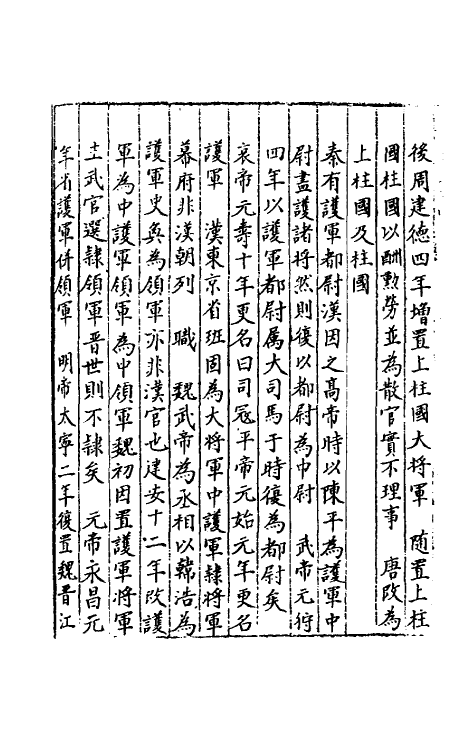 後周建德四年增置上柱國大將軍　隨置上柱
國柱國以酬勲勞並為散官實不理事　唐改為
上柱國及柱國
秦有護軍都尉漢因之髙帝時以陳平為護軍中
尉盡護諸将然則復以都尉為中尉　武帝元狩
四年以護軍都尉屬大司馬于時復為都尉矣
哀帝元壽十年更名曰司冦平帝元始元年更名
護軍　漢東京省班固為大将軍中護軍隷將軍
幕府非漢朝列　職　魏武帝為丞相以韓浩為
護軍史奐為領軍亦非漢官也建安十二年改護
軍為中護軍領軍為中領軍魏初因置護軍将軍
主武官選隷領軍晉世則不隷矣　元帝永昌元
年省護軍併領軍　明帝太寧二年復置魏晉江